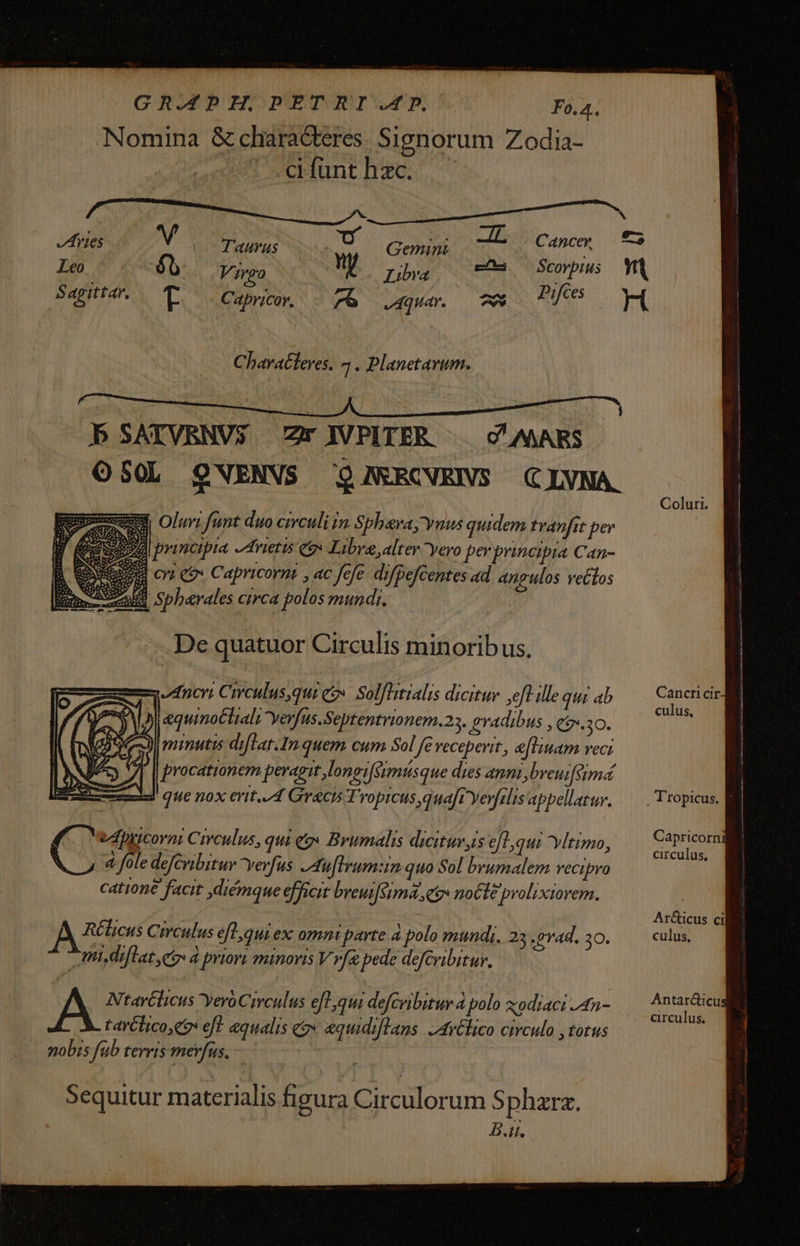 GRAPH. PETRI AP. Fo.4.
Nomina & characteres Signorum Zodia-
ci ſunt hæc.
Aries ♈ Taurus ♉ Gemini ♊ Cancer ♋
Leo ♌ Virgo ♍ Libra ♎ Scorpius ♏
Sagittar. ♐ Capricor. ♑ Aquar. ♒ Piſces ♓
Characteres. 7. Planetarum.
♄ SATVRNVS ♃ IVPITER ♂ MARS
☉ SOL ♀ VENVS ☿ MERCVRIVS ☾ LVNA.
Coluri.
COluri ſunt duo circuli in Sphæra, vnus quidem tranſit per
principia Arietis & Libræ, alter vero per principia Can-
cri & Capricorni , ac ſeſe diſpeſcentes ad angulos rectos
Sphærales circa polos mundi.
De quatuor Circulis minoribus.
CAncri Circulus, qui & Solſtitialis dicitur ,eſt ille qui ab
Cancri cir-
culus,
æquinoctiali verſus Septentrionem.23. gradibus , &.30.
minutis diſtat. In quem cum Sol ſe receperit, æſtiuam reci
procationem peragit, longiſsimúsque dies anni, breuiſsimá
que nox erit. A Græcis Tropicus, quaſi verſilis appellatur.
Tropicus.
CApricorni Circulus, qui & Brumalis dicitur, is eſt, qui vltimo,
Capricorni
circulus,
à ſole deſcribitur verſus Auſtrum: in quo Sol brumalem recipro
catione facit ,diémque efficit breuiſsimá, & nocte prolixiorem.
ARcticus Circulus eſt, qui ex omni parte à polo mundi. 23. grad. 30.
Arcticus cir
culus,
mi, diſtat, & à priori minoris Vrſæ pede deſcribitur.
ANtarcticus verò Circulus eſt, qui deſcribitur à polo zodiaci An-
Antarcticus
circulus,
tarctico, & eſt æqualis & æquidiſtans Arctico circulo , totus
nobis ſub terris merſus.
Sequitur materialis figura Circulorum Sphæræ.
B.ii.